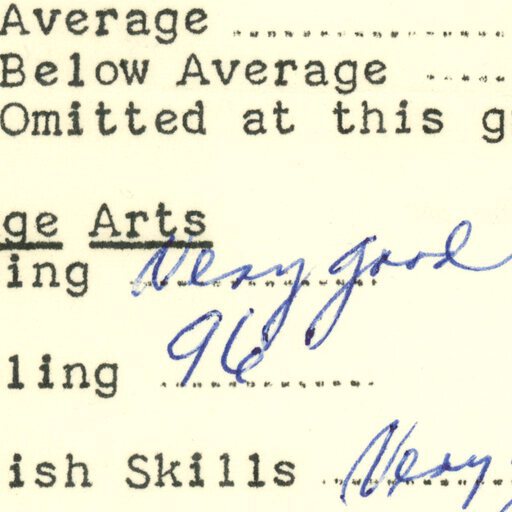 Average
Below Average
Omitted at this g
ge Arts
ing Very good
ling 96
ish Skills Very